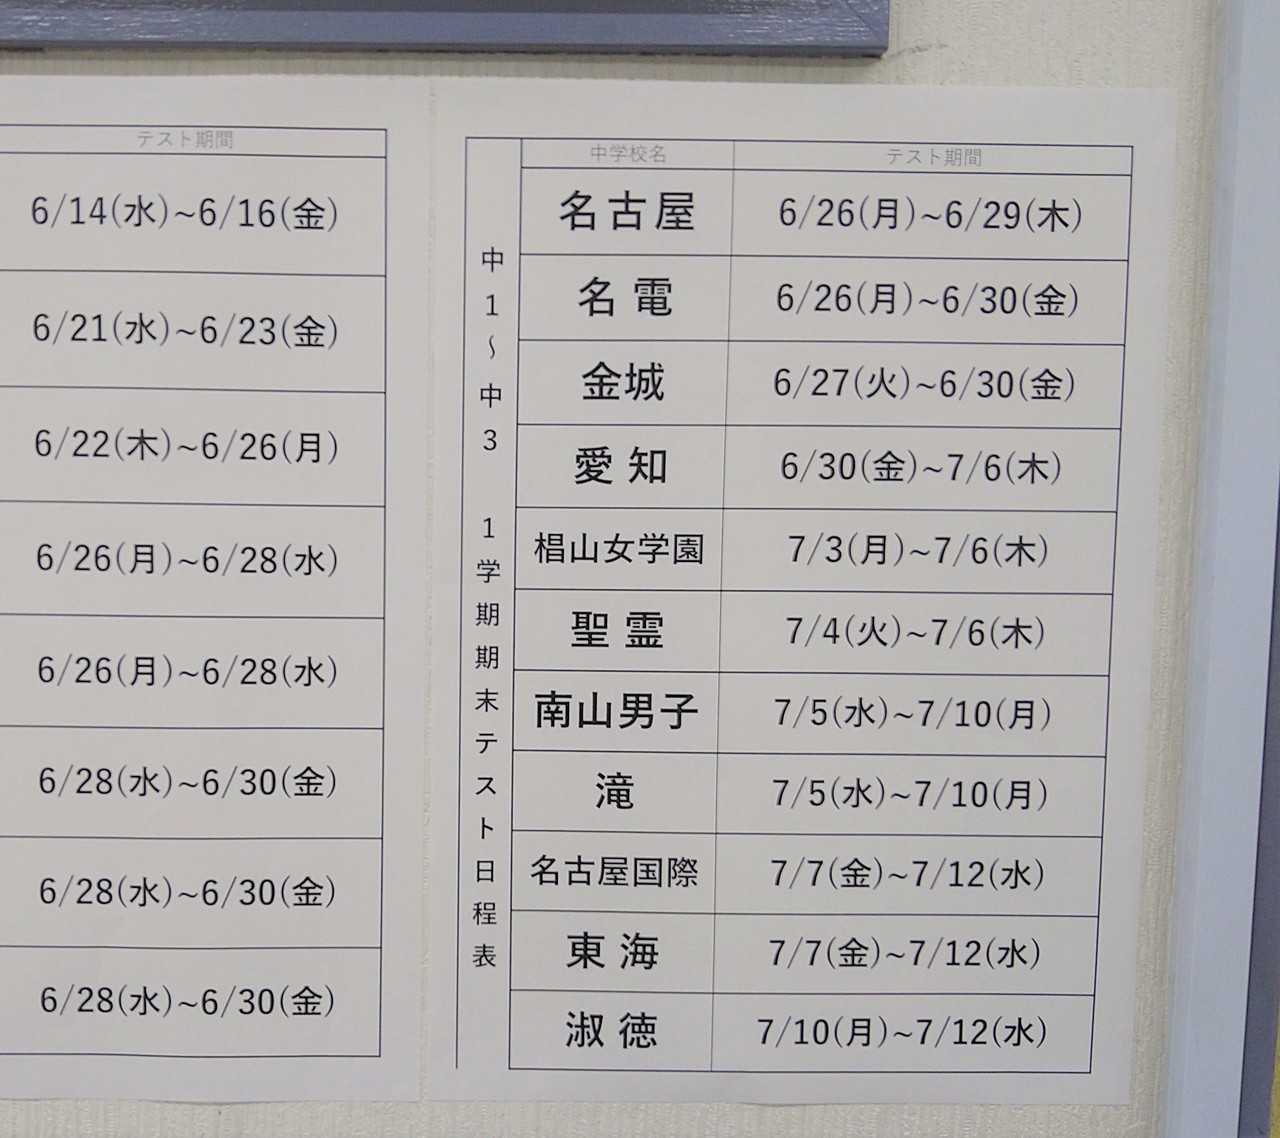 テスト期間
6/14(水)~6/16(金)
6/21(水)~6/23(金)
6/22(木)~6/26(月)
6/26(月)~6/28(水)
6/26(月)~6/28(水)
6/28(水)~6/30(金)
6/28(水)~6/30(金)
6/28(水)~6/30(金)
中1~中3 1学期期末テスト日程表
中学校名 テスト期間
名古屋 6/26(月)~6/29(木)
名電 6/26(月)~6/30(金)
金城 6/27(火)~6/30(金)
愛知 6/30(金)~7/6(木)
椙山女学園 7/3(月)~7/6(木)
聖霊 7/4(火)~7/6(木)
南山男子 7/5(水)~7/10(月)
滝 7/5(水)~7/10(月)
名古屋国際 7/7(金)~7/12(水)
東海 7/7(金)~7/12(水)
淑徳 7/10(月)~7/12(水)